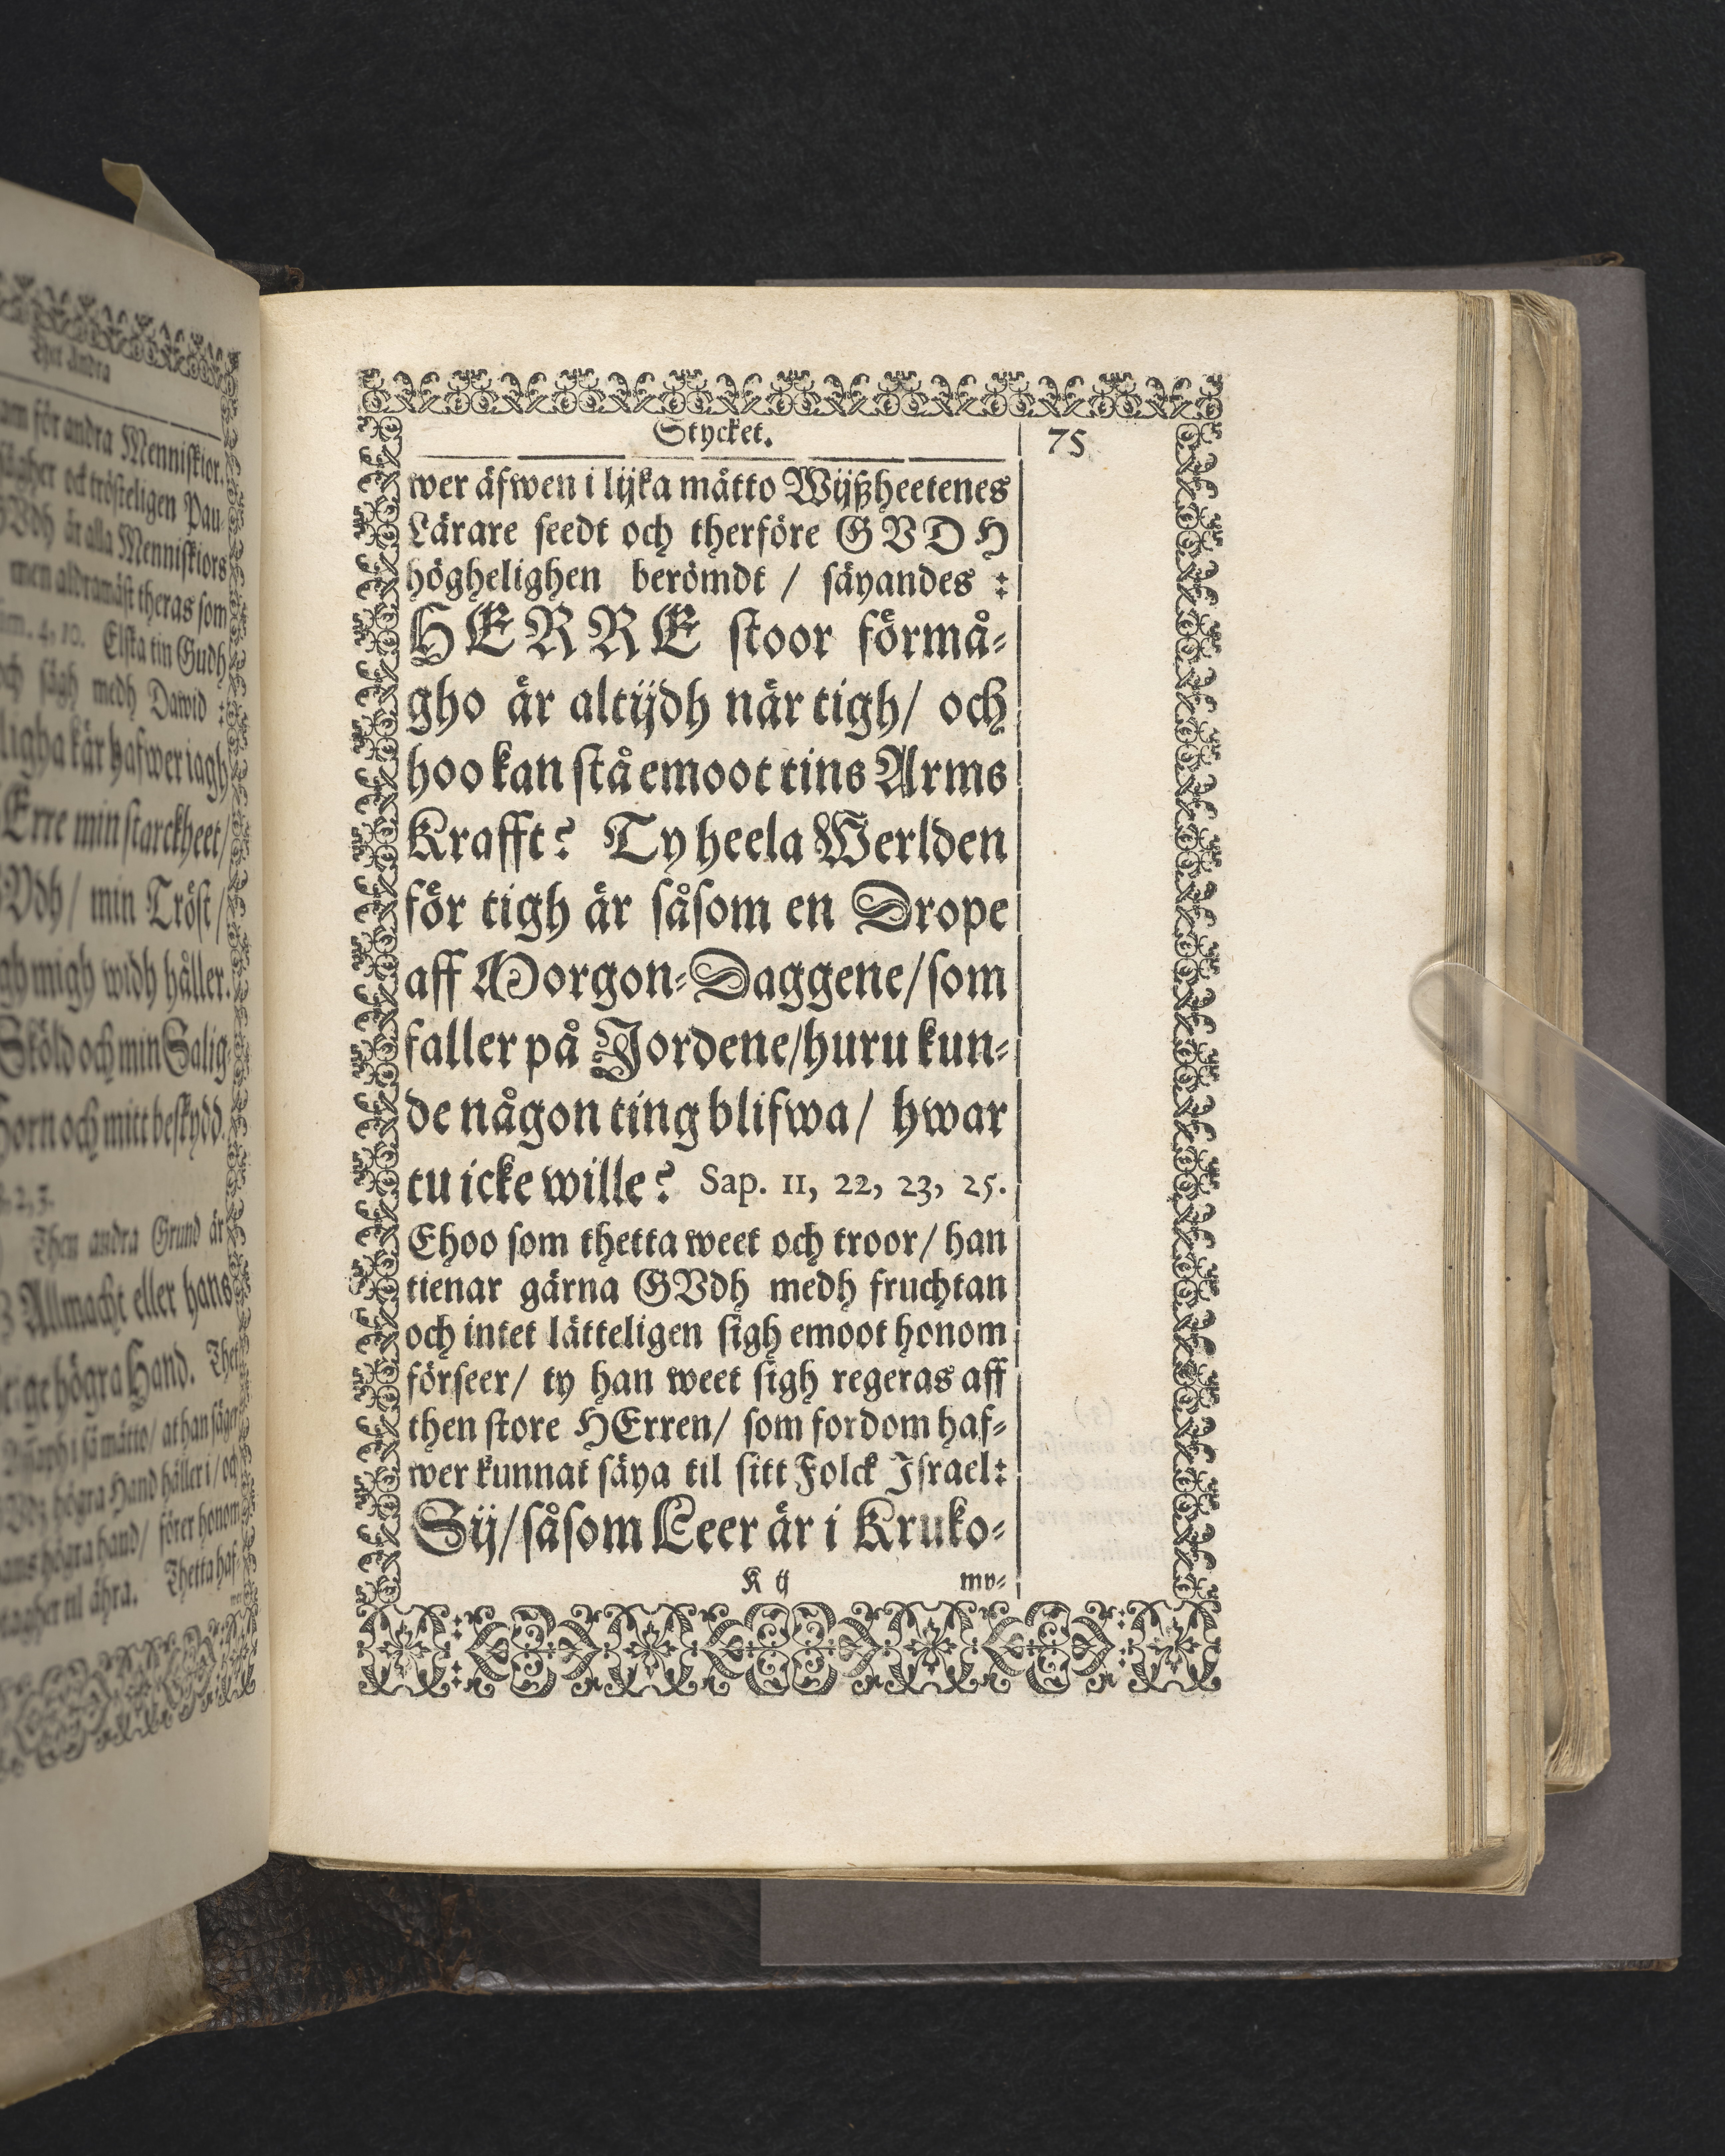 Thet Andra
am för andra Menniskior.
sägher och trösteligen Pau-
GVdh är alla Menniskiors
men aldramäst theras som
4, 10. Elska tin Gudh
och sägh medh Dawid :
ligha kär hafwer iagh
Erre min starckheet /
Vdh / min Tröst /
gh migh widh håller.
Sköld och min Salig-
Horn och mitt beskydd.
2, 3.
Then andra Grund är
Allmacht eller hans
högra Hand. Thet
i så mätto / at han säger
högra Hand håller i / och
hans högra hand / förer honom
tagher til ähra. Thetta haf-
Stycket.
75
wer äfwen i lijka mätto Wijßheetenes
Lärare seedt och therföre GVDH
höghelighen berömdt / säyandes :
HERRE stoor förmå-
gho är altijdh när tigh / och
hoo kan stå emoot tins Arms
Krafft? Ty heela Werlden
för tigh är såsom en Drope
aff Morgon-Daggene / som
faller på Jordene / huru kun-
de någon ting blifwa / hwar
tu icke wille? Sap. 11, 22, 23, 25.
Ehoo som thetta weet och troor / han
tienar gärna GVdh medh fruchtan
och intet lätteligen sigh emoot honom
förseer / ty han weet sigh regeras aff
then store HErren / som fordom haf-
wer kunnat säya til sitt Folck Israel:
Sij / såsom Leer är i Kruko-
K ij
mo-